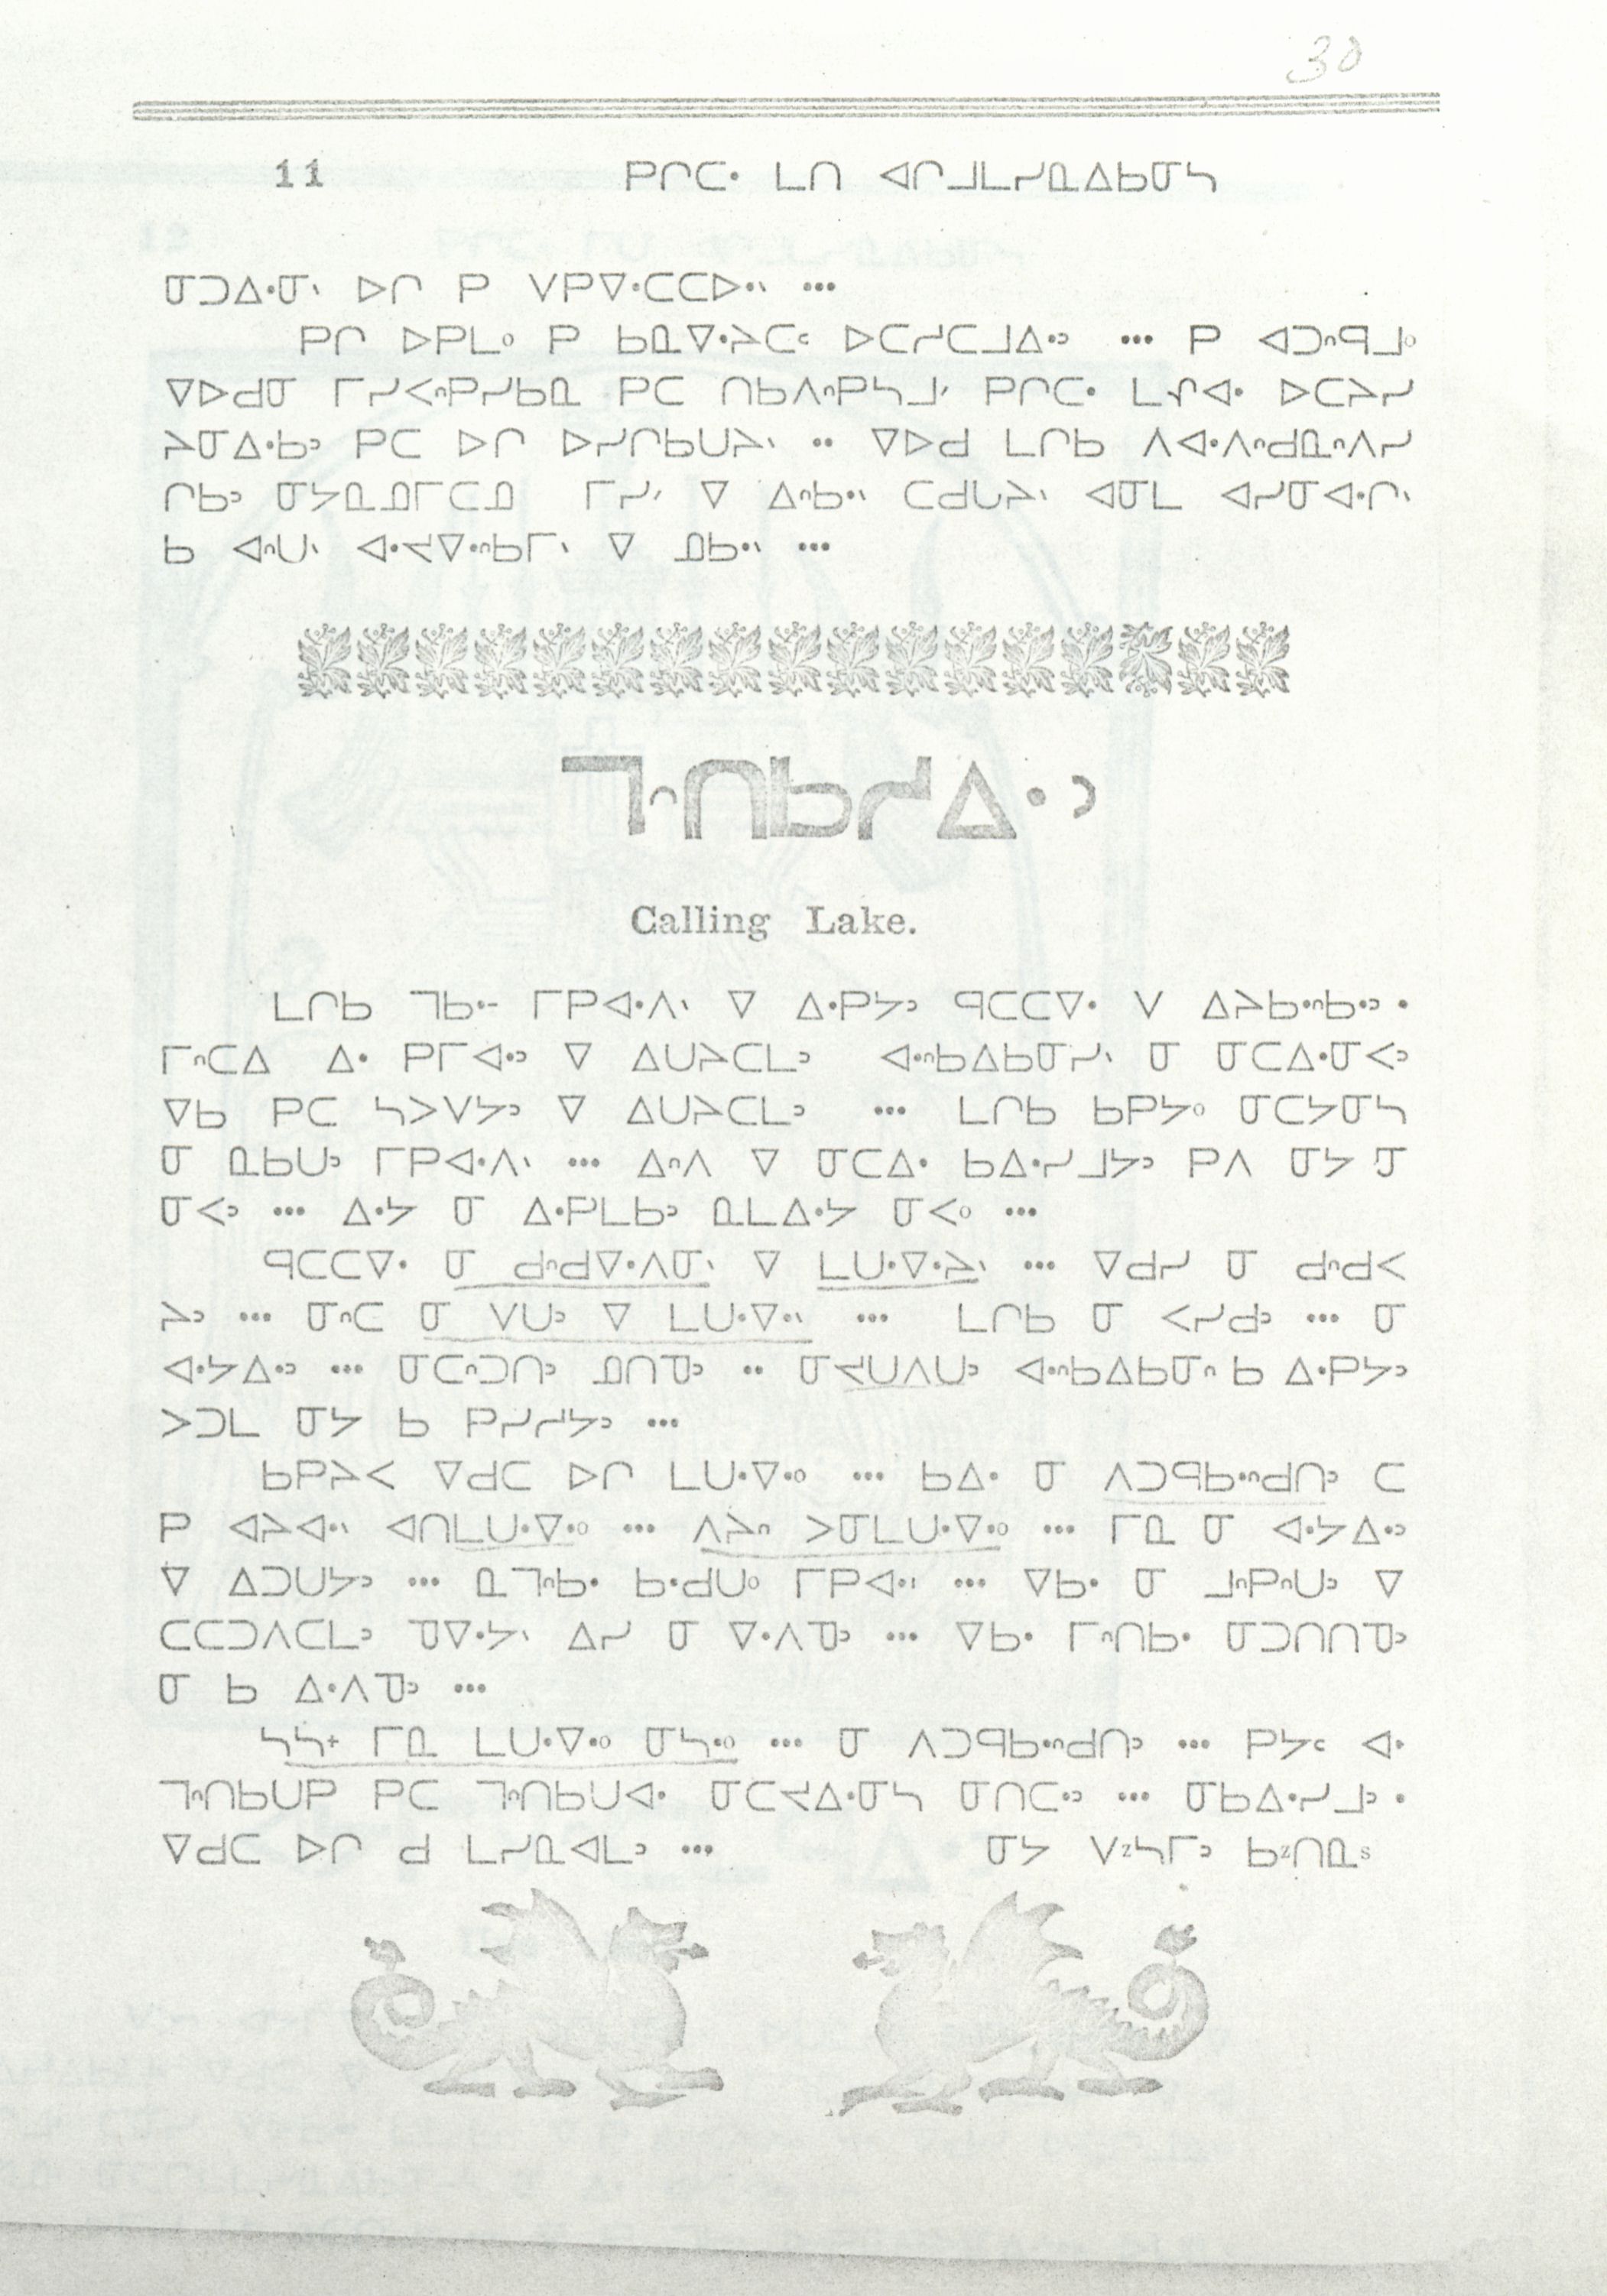 30
11 ᑭᒋᑕᐧ ᒪᑎ ᐊᒋᒧᒪᓯᓇᐃᑲᓂᓴ
ᓂᑐᐃᐧᓂᐠ ᐅᒋ ᑭ ᐯᑭᐁᐧᑕᑕᐅᐧᐠ ...
ᑭᒋ ᐅᑭᒪᐤ ᑭ ᑲᓇᐁᐧᔨᑕᑦ ᐅᑕᓯᑕᒧᐃᐧᐣ ... ᑭ ᐊᑐᐢᑫᒧᐤ
ᐁᐅᑯᓂ ᒥᓯᐸᐢᑭᓯᑲᓇ ᑭᑕ ᑎᑲᐱᐢᑭᓴᒧᐟ ᑭᒋᑕᐧ ᒪᔑᐊᐧ ᐅᑕᔨᓯ
ᔨᓂᐃᐧᑲᐣ ᑭᑕ ᐅᒋ ᐅᓯᒋᑲᑌᔨᐠ .. ᐁᐅᑯ ᒪᒋᑲ ᐱᐊᐧᐱᐢᑯᓇᐢᐱᓯ
ᒋᑲᐣ ᓂᔭᓇᓄᒥᑕᓄ ᒥᓯᐟ ᐁ ᐃᐢᑲᐧᐠ ᑕᑯᑌᔨᐠ ᐊᓂᒪ ᐊᓯᓂᐊᐧᒋᐠ
ᑲ ᐊᐢᑌᐠ ᐊᐧᔪᐁᐧᐢᑲᒥᐠ ᐁ ᓄᑲᐧᐠ ...
ᒣᐢᑎᑲᓱᐃᐧᐣ
Calling Lake.
ᒪᒋᑲ ᒣᑲᐧᐨ ᒥᑭᐊᐧᐱᐠ ᐁ ᐃᐧᑭᔭᐣ ᑫᑕᑕᐁᐧ ᐯ ᐃᔨᑲᐧᐢᑲᐧᐣ •
ᒥᐢᑕᐃ ᐃᐧ ᑭᒥᐊᐧᐣ ᐁ ᐃᑌᔨᑕᒪᐣ ᐊᐧᐢᑲᐃᑲᓂᓯᐠ ᓂ ᓂᑕᐃᐧᓂᐸᐣ
ᐁᑲ ᑭᑕ ᓴᐳᐯᔭᐣ ᐁ ᐃᑌᔨᑕᒪᐣ ... ᒪᒋᑲ ᑲᑭᔭᐤ ᓂᑕᔭᓂᓴ
ᓂ ᓇᑲᑌᐣ ᒥᑭᐊᐧᐱᐠ ... ᐃᐢᐱ ᐁ ᓂᑕᐃᐧ ᑲᐃᐧᓯᒧᔭᐣ ᑭᐱ ᓂᔭ ᓂ
ᓂᐸᐣ ... ᐃᐧᔭ ᓂ ᐃᐧᑭᒪᑲᐣ ᓇᒪᐃᐧᔭ ᓂᐸᐤ ...
ᑫᑕᑕᐁᐧ ᓂ ᑯᐢᑯᐁᐧᐱᓂᐠ ᐁ ᒪᑌᐧᐁᐧᔨᐠ ... ᐁᑯᓯ ᓂ ᑯᐢᑯᐸ
ᔨᐣ ... ᓂᐢᑕ ᓂ ᐯᑌᐣ ᐁ ᒪᑌᐧᐁᐧᐠ ... ᒪᒋᑲ ᓂ ᐸᓯᑯᐣ ... ᓂ
ᐊᐧᔭᐃᐧᐣ ... ᓂᑕᐢᑐᑎᐣ ᓄᑎᑫᐣ .. ᓂᔪᑌᐱᑌᐣ ᐊᐧᐢᑲᐃᑲᓂᐢ ᑲ ᐃᐧᑭᔭᐣ
ᐳᑐᒪ ᓂᔭ ᑲ ᑭᓯᓱᔭᐣ ...
ᑲᑭᔨᐸ ᐁᑯᑕ ᐅᒋ ᒪᑌᐧᐁᐧᐤ ... ᑲᐃᐧ ᓂ ᐱᑐᑫᑲᐧᐢᑯᑎᐣ ᑕ
ᑭ ᐊᔨᐊᐧᐠ ᐊᑎᒪᑌᐧᐁᐧᐤ ... ᐱᔨᐢ ᐳᓂᒪᑌᐧᐁᐧᐤ ... ᒥᓇ ᓂ ᐊᐧᔭᐃᐧᐣ
ᐁ ᐃᑐᑌᔭᐣ ... ᓇᒣᐢᑲᐧ ᑲᐧᑯᑌᐤ ᒥᑭᐊᐧᑊ ... ᐁᑲᐧ ᓂ ᒧᐢᑭᐢᑌᐣ ᐁ
ᑕᑕᑐᐱᑕᒪᐣ ᑫᐁᐧᔭᐠ ᐃᓯ ᓂ ᐁᐧᐱᓀᐣ ... ᐁᑲᐧ ᒥᐢᑎᑲᐧ ᓂᑐᑎᑎᓀᐣ
ᓂ ᑲ ᐃᐧᐱᓀᐣ ...
ᓴᓴᕀ ᒥᓇ ᒪᑌᐧᐁᐧᐤ ᓂᓴᐧᐤ ... ᓂ ᐱᑐᑫᑲᐧᐢᑯᑎᐣ ... ᑭᔭᑦ ᐊᐧ
ᒣᐢᑎᑲᑌᑭ ᑭᑕ ᒣᐢᑎᑲᑌᐊᐧ ᓂᑕᔪᐃᐧᓂᓴ ᓂᑎᑕᐧᐣ ... ᓂᑲᐃᐧᓯᒧᐣ •
ᐁᑯᑕ ᐅᒋ ᑯ ᒪᓯᓇᐊᒪᐣ ... ᓂᔭ ᐯᶻᓴᒥᐣ ᑲᶻᑎᓇˢ